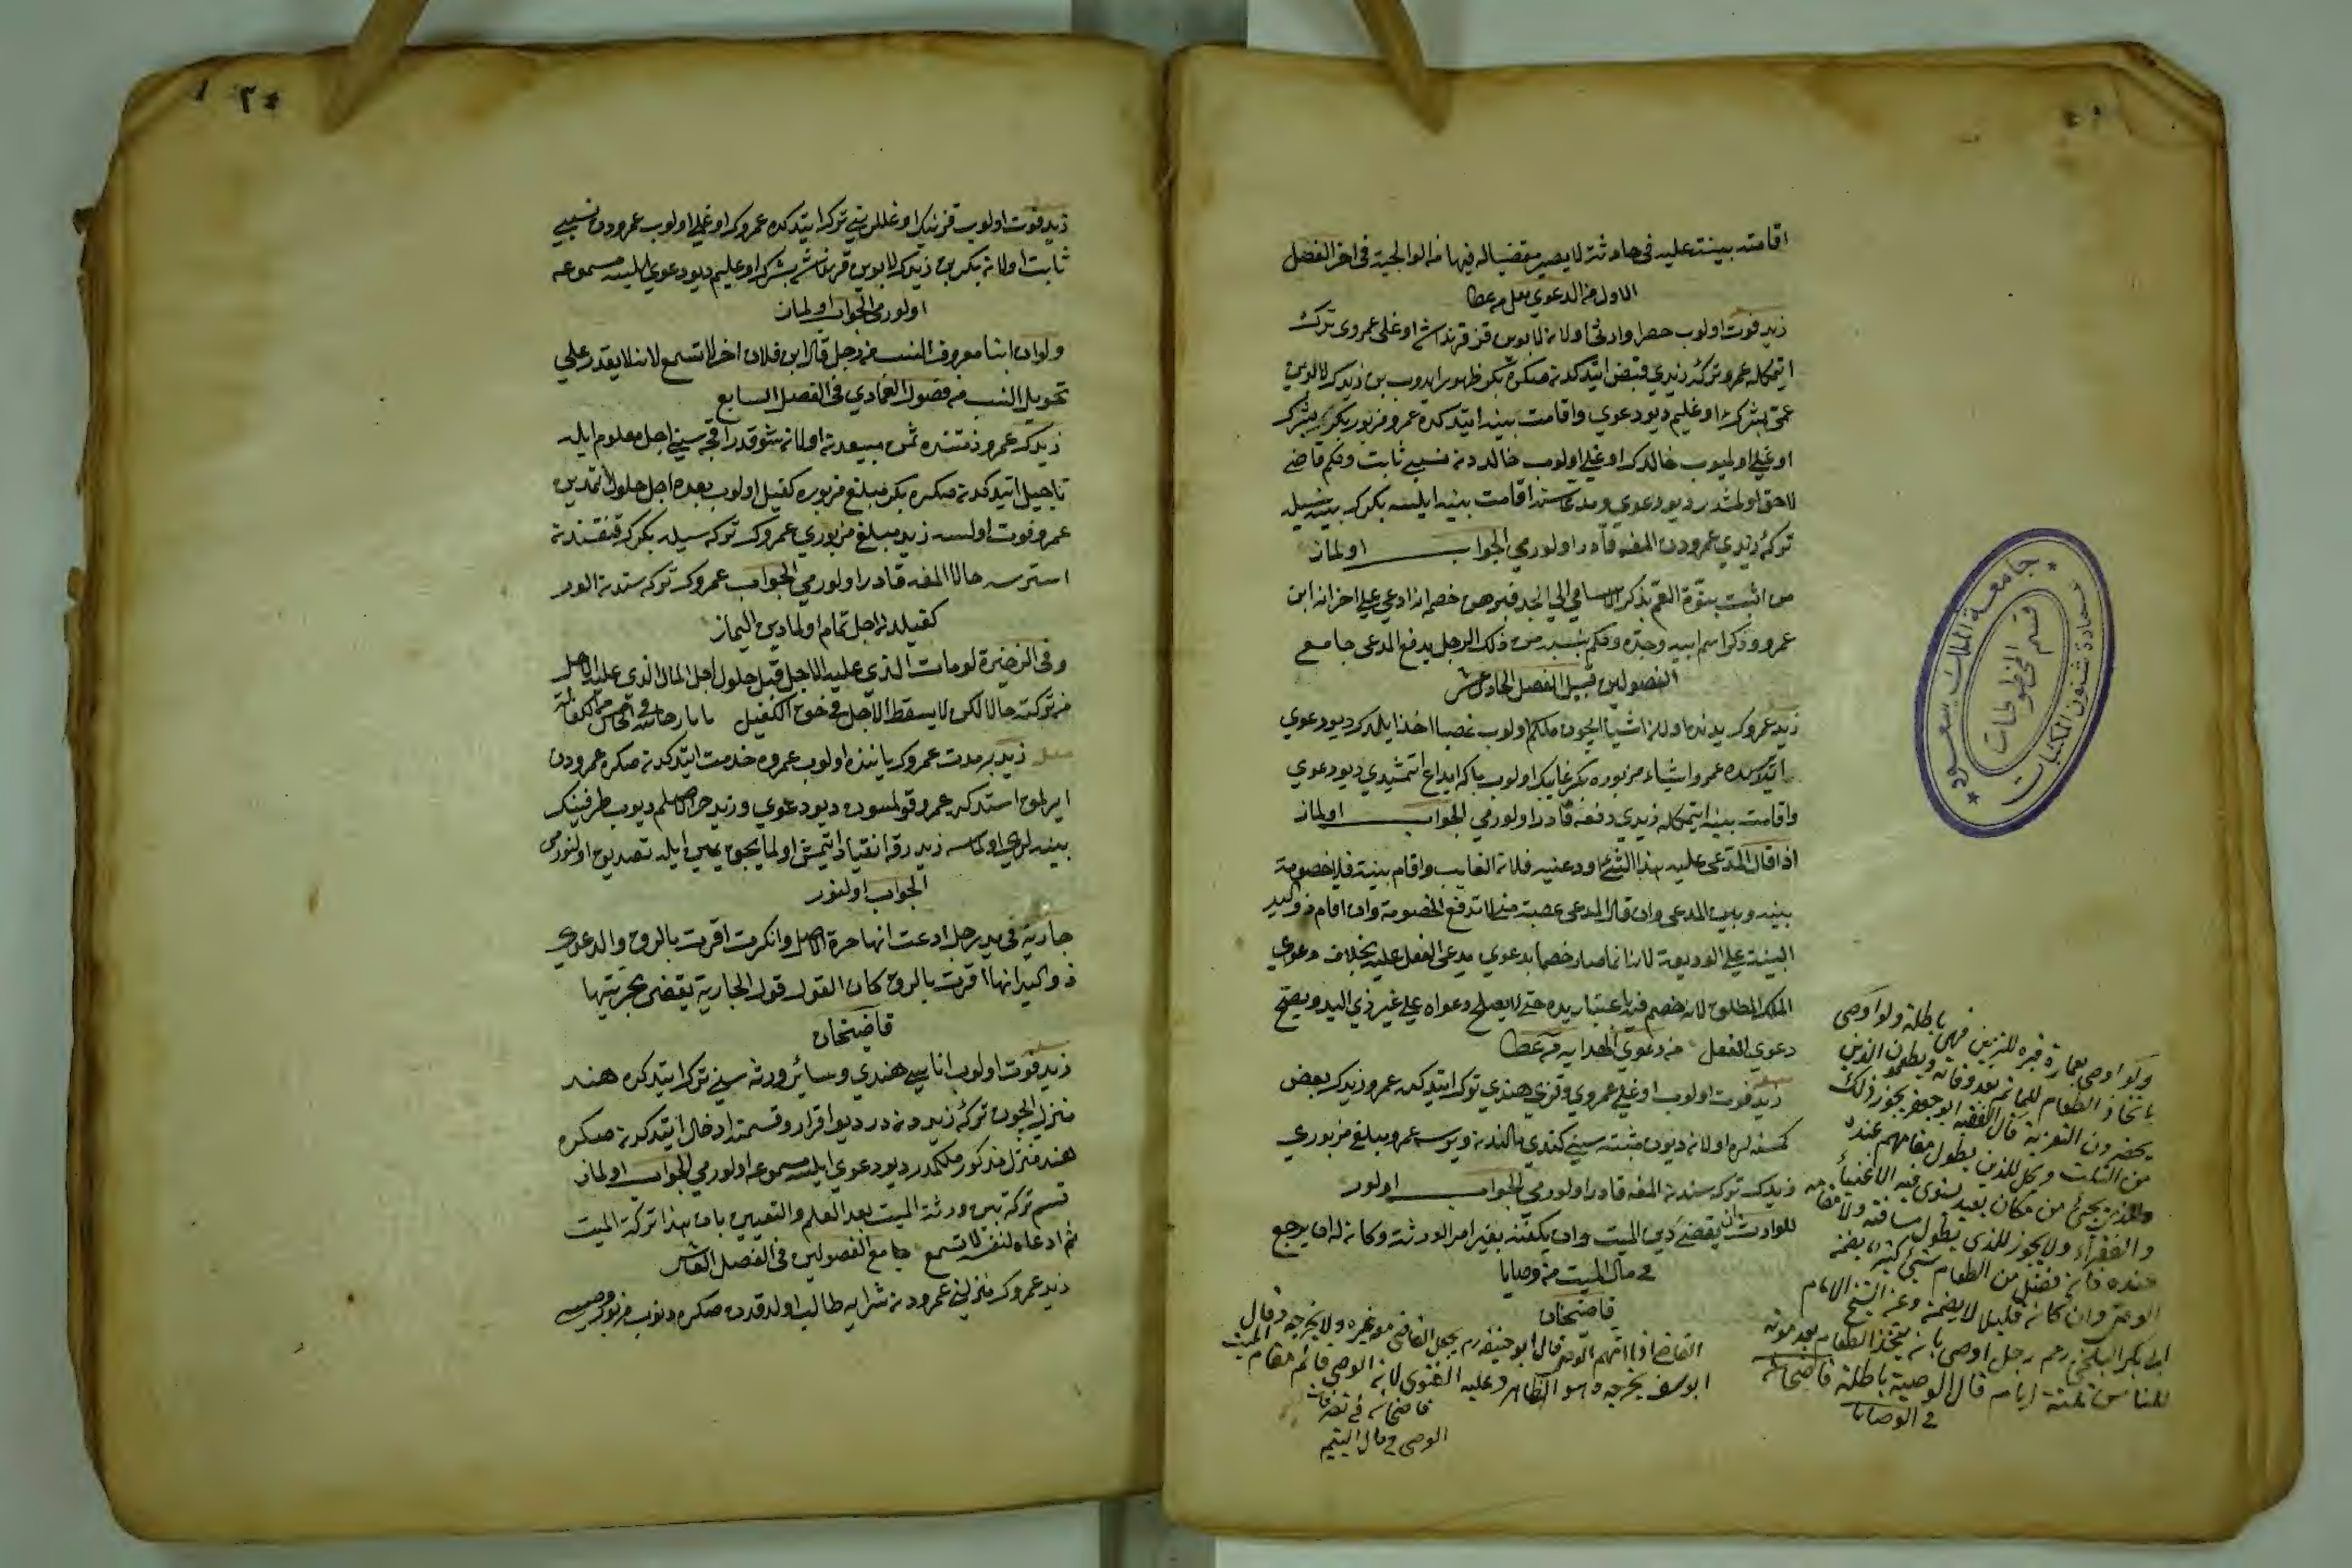 اقامته بينة عليه فى حادثة لا يصير مقضيا له فيها من الوالجية فى اخر الفصل
الاول من الدعوي
زيد فوت اولوب حصرا وارثى اولان لابوين قز قرنداشى اوغلى عمروى ترك
ايتمكله عمرو تركۀ زيدي قبض ايتدكدنصكره بكر ظهور ايدوب بن زيدك لابوين
عمى بشرك اوغليم ديو دعوي واقامت بينه ايتدكده عمرو مزبور بكر بشرك
اوغلى اولميوب خالدك اوغلى اولوب خالددن نسبى ثابت وحكم قاضى
لاحق اولمشدر ديو دعوي ومدعاسنه اقامت بينه ايلسه بكرك بينه سيله
تركۀ زيدي عمرودن المغه قادر اولورمي الجواب اولماز
من اثبت بنوة العم بذكر الاسامي الى الجد فبرهن خصمه انه ادعى على اخر انه ابن
عمرو وذكر اسم ابيه وجده وحكم بنسبه من ذلك الرجل يدفع المدعى جامع
الفصولين قبيل الفصل الحادي عشر
زيد عمروك يدنده اولان اشيا ايچون ملكم اولوب غصبا اخذ ايلدك ديو دعوي
ايتدكده عمرو اشياء مزبوره بكر غايبك اولوب بكا ايداع ايتمشيدي ديو دعوي
واقامت بينه ايتمكله زيدي دفعه قادر اولورمي الجواب اولماز
اذا قال المدعى عليه هذا الشئ اودعنيه فلان الغايب واقام بينة فلا خصومة
بينه وبين المدعى وان قال المدعى غصبته منى لا تدفع الخصومة وان اقام ذو اليد
البينة على الوديعة لانه انما صار خصما بدعوي مدعى الفعل عليه بخلاف دعوي
الملك المطلق لانه خصم فيه باعتبار يده حتى لا يصلح دعواه على غير ذي اليد ويصح
دعوي الفعل من دعوي الهدايه
زيد فوت اولوب اوغلى عمروي وقزي هندي ترك ايتدكده عمرو زيدك بعض
كمسنه لره اولان ديون مثبته سينى كندي مالندن ويرسه عمرو مبلغ مزبوري
زيدك تركه سندن المغه قادر اولورمي الجواب اولور
للوارث ان يقضى دين الميت وان يكفنه بغير امر الورثة وكان له ان يرجع
فى مال الميت من وصايا
قاضيخان
القاضى اذا اتهم الوصى قال ابو حنيفة رم يجعل القاضى معه غيره ولا يخرجه وقال
ابو يوسف يخرجه وهو الظاهر وعليه الفتوى لان الوصى قائم مقام الميت
قاضيخان فى تصرفات
الوصى فى مال اليتيم
ولو اوصى بعمارة قبره للتزيين فهى باطلة ولو اوصى
باتخاذ الطعام للمأتم بعد وفاته ويطعمون الذين
يحضرون التعزية قال الفقيه ابو جعفر يجوز ذلك
من الثلث ويحل للذين يطول مقامهم عنده
وللذين يجئ من مكان بعيد يستوى فيه الاغنياء
والفقراء ولا يجوز للذى لا يطول مسافته ولا مقامه
عنده فان فضل من الطعام شئ كثير يضمن
الوصى وان كان قليلا لا يضمن وعن الشيخ الامام
ابى بكر البلخى رحم رجل اوصى بان يتخذ الطعام بعد موته
للناس ثلثة ايام قال الوصية باطلة قاضيخان
فى الوصايا
جامعة الملك سعود
عمادة شئون المكتبات
قسم المخطوطات
زيد فوت اولوب قزينك اوغللرينى ترك ايتدكده عمروك اوغلى اولوب عمرودن نسبى
ثابت اولان بكر بن زيدك لابوين قرنداشى بشرك اوغليم ديو دعوي ايلسه مسموعه
اولورمى الجواب اولماز
ولو ان ابنا معروف النسب من رجل قال انا ابن فلان اخر لا تسمع لانه لا يقدر على
تحويل النسب من فصول العمادي فى الفصل السابع
زيدك عمرو ذمتنده ثمن مبيعدن اولان شو قدر اقچه سينى اجل معلوم ايله
تاجيل ايتدكدنصكره بكر مبلغ مزبوره كفيل اولوب بعده اجل حلول ايتمدين
عمرو فوت اولسه زيد مبلغ مزبوري عمروك تركه سيله بكرك قنقسندن
استرسه حالا المغه قادر اولورمي الجواب عمروك تركه سندن الور
كفيلدن اجل تمام اولمادين اليماز
وفى الذخيرة لو مات الذي عليه الاجل قبل حلول اجل المال الذى عليه الاجل
من تركته حالا لكن لا يسقط الاجل فى حق الكفيل تاتارخانيه فى الخامس من الكفالة
زيد بر مدت عمروك ياننده اولوب عمروه خدمت ايتدكدنصكره عمرودن
ايرلمق استدكده عمرو قولمسون ديو دعوي وزيد حر الاصلم ديوب طرفينك
بينه لري اولماسه زيد رقه انقياد ايتمش اولمايجق يمين ايله تصديق اولنورمى
الجواب اولنور
جارية فى يد رجل ادعت انها حرة الاصل وانكرت اقرت بالرق والدعوي
ذو اليد انها اقرت بالرق كان القول قول الجارية يقضى بحريتها
قاضيخان
زيد فوت اولوب اناسى هندي وسائر ورثه سينى ترك ايتدكده هند
منزل ايچون تركۀ زيددندر ديو اقرار وقسمته ادخال ايتدكدنصكره
هند منزل مذكور ملكمدر ديو دعوي ايلسه مسموعه اولورمي الجواب اولماز
قسم تركة بين ورثة الميت بعد العلم والتعيين بان هذا تركة الميت
ثم ادعاه لنفسه لا تسمع جامع الفصولين فى الفصل العاشر
زيد عمروك منزلنى عمرودن شرايه طالب اولدقدنصكره دونوب مزبور